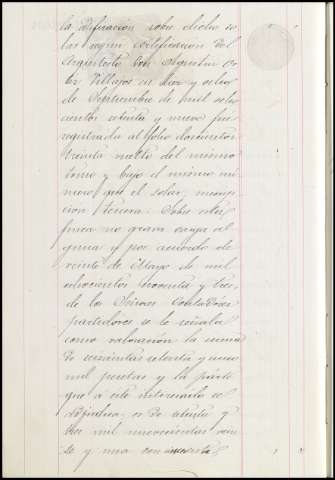 la edificación sobre dicho so
lar según certificación del
Arquitecto Don Agustín Or
tiz Villajos es diez y ocho
de Septiembre de mil ocho
cientos setenta y nueve fue
registrada al folio doscientos
treinta del mismo
tomo y bajo el mismo nú
mero que el solar, inscrip
ción tercera. Sobre esta
finca no gravan carga al
guna y por acuerdo de
veinte de Mayo de mil
ochocientos noventa y tres,
de los Señores Contadores
partidores se le señala
como valoración la suma
de seiscientas setenta y una
mil pesetas y la parte
que a este interesado se
adjudica es de setenta y
tres mil novecientas vein
te y una con cincuenta